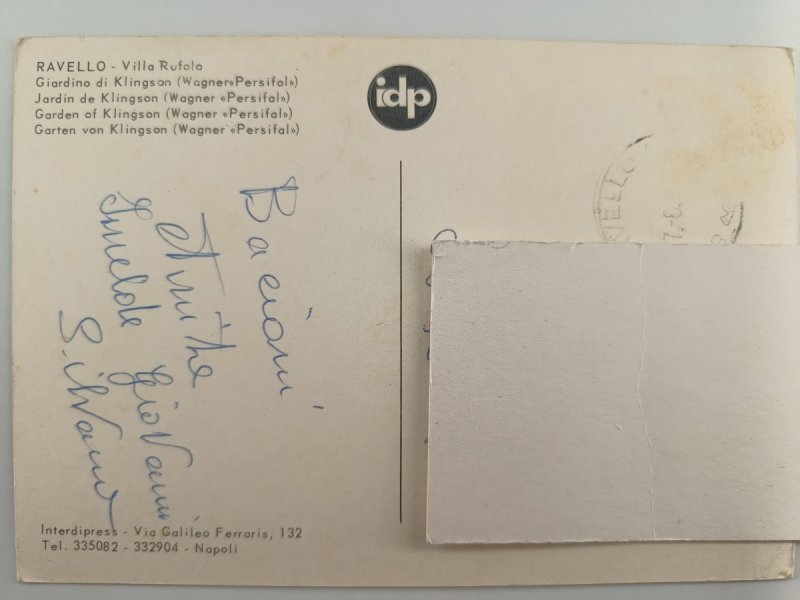 RAVELLO - Villa Rufolo
Giardino di Klingson (Wagner«Persifal»)
Jardin de Klingson (Wagner «Persifal»)
Garden of Klingson (Wagner «Persifal»)
Garten von Klingson (Wagner «Persifal»)
idp
Bacioni
Imelde Giovanni
Silvana
Interdipress - Via Galileo Ferraris, 132
Tel. 335082 - 332904 - Napoli